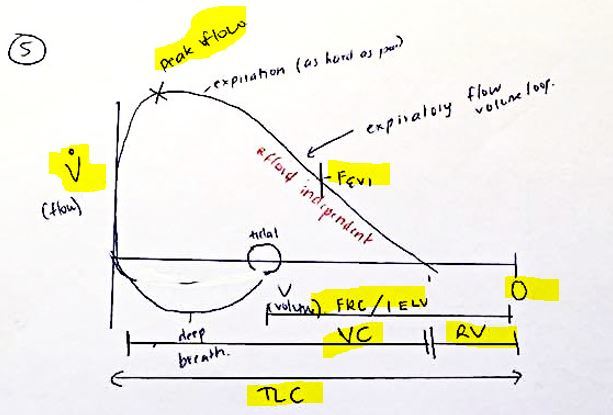 5
peak flow
expiration (as hard as poss)
expiratory flow
volume loop.
effort independent
FEV1
V̇
(flow)
tidal
V
(volume)
FRC / EELV
0
deep
breath.
VC
RV
TLC